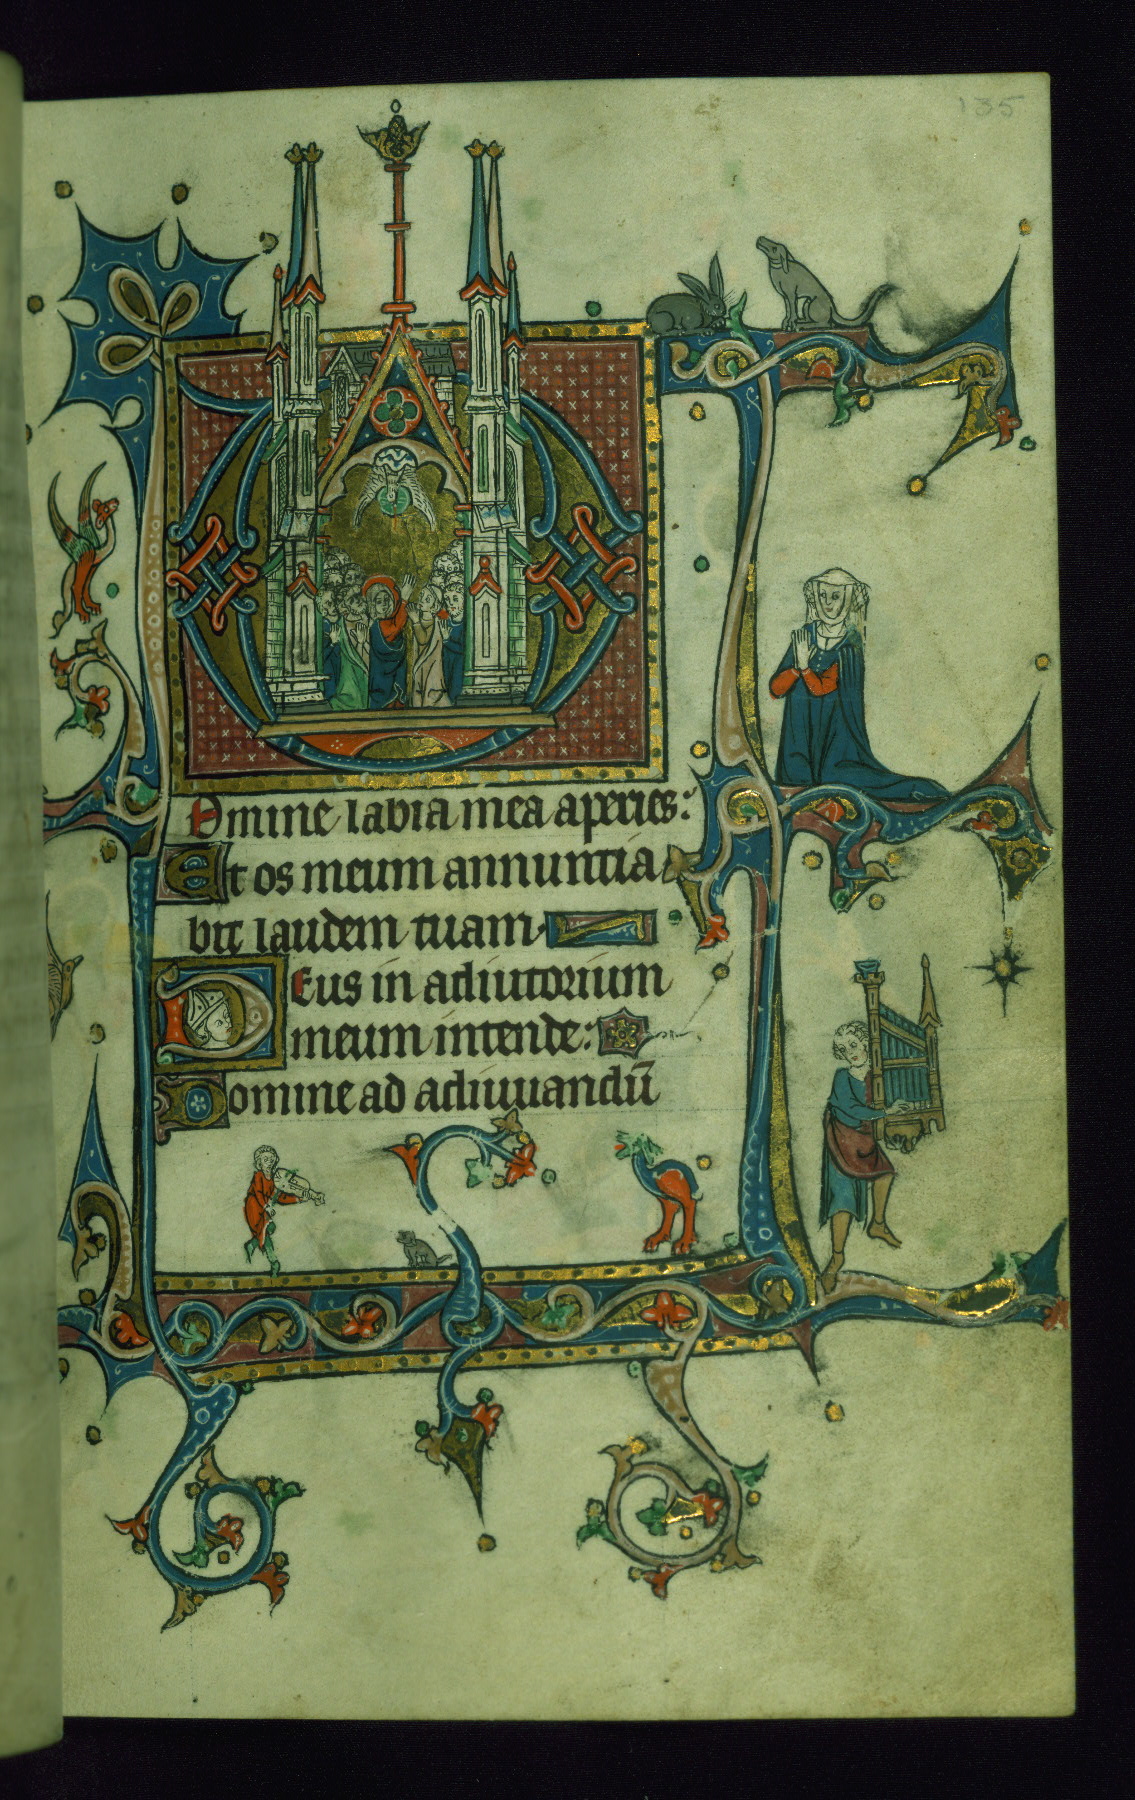 135
Domine labia mea aperies:
Et os meum annuntia
bit laudem tuam.
Deus in adiutorium
meum intende:
Domine ad adiuuandū